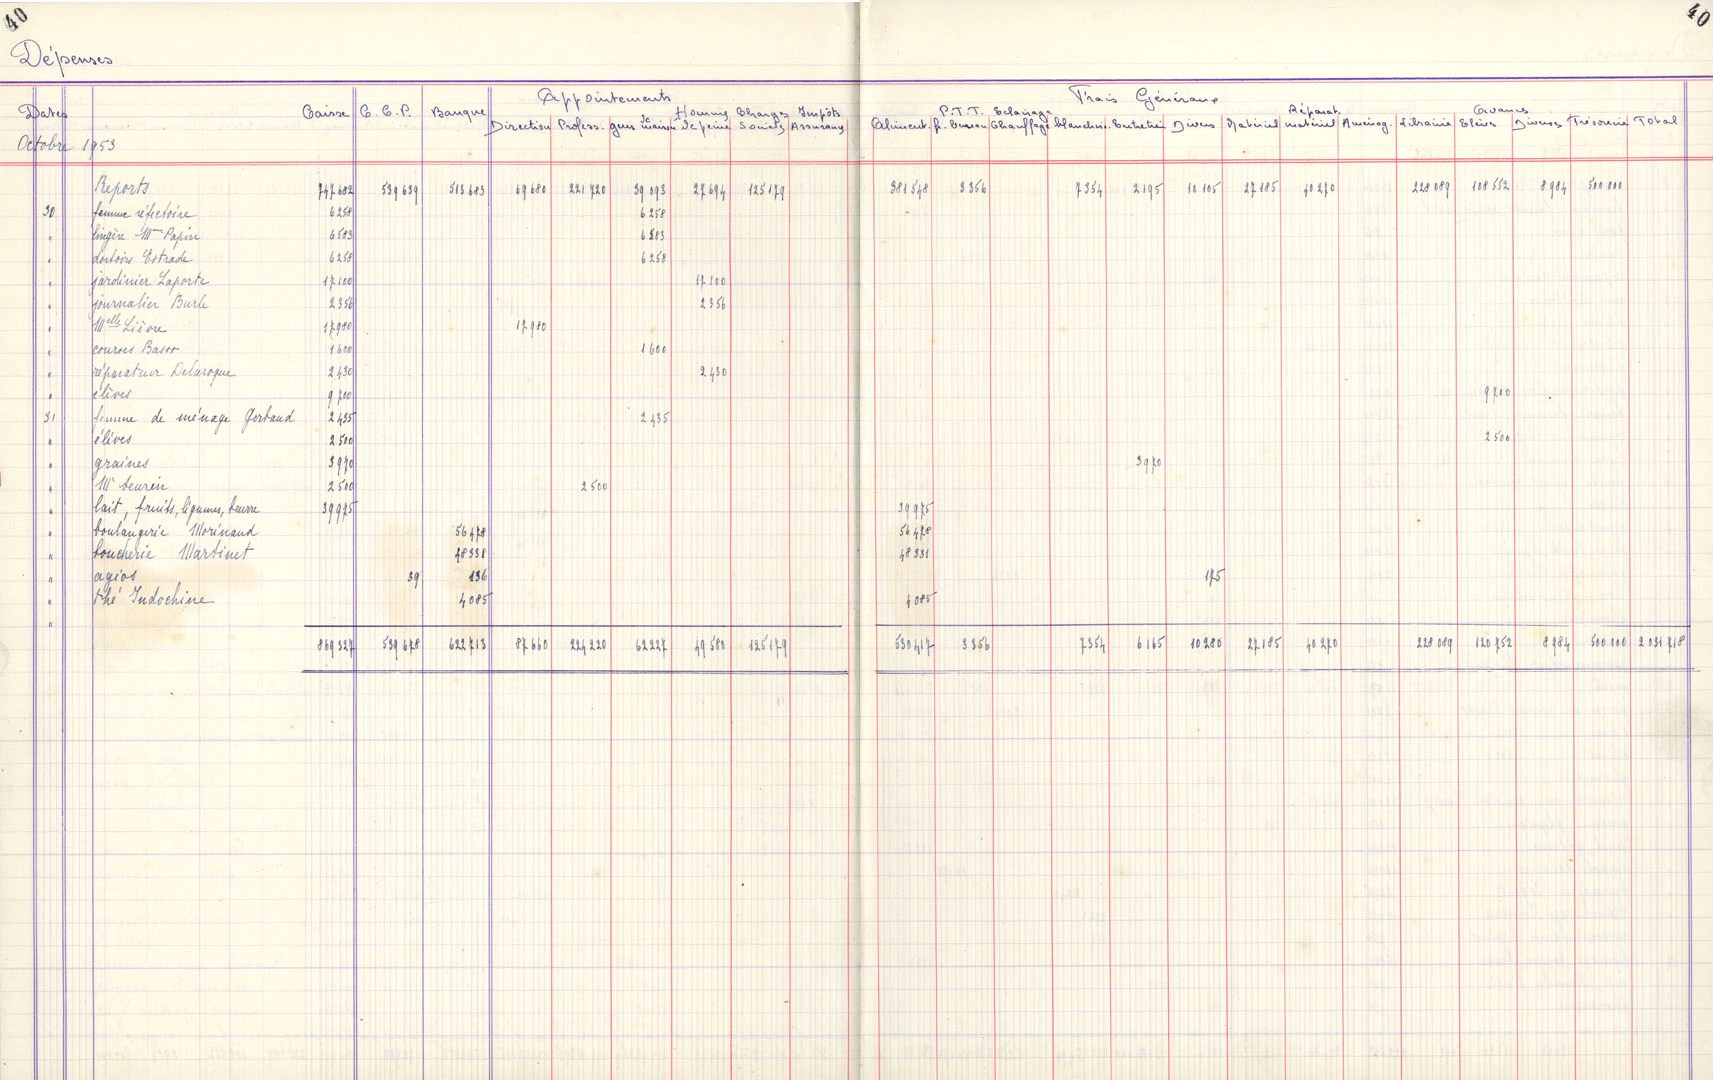 40
40
Dépenses
Appointements
Frais Généraux
Dates Caisse C.C.P. Banque Direction Profess. gens de maison Hommes de peine Charges Sociales Impôts Assurances Aliment. P.T.T. f. bureau Eclairage Chauffage blanchis. Entretien Divers Matériel Réparat. matériel Aménag. Librairie Avances Elèves Diverses Trésorerie Total
Octobre 1953
Reports 747682 539639 513683 69680 221720 39093 27694 125179 381548 3356 7354 2195 10105 27185 40270 228089 108552 8984 500000
30 femme réfectoire 6258 6258
" lingère Mme Papin 6583 6583
" dortoirs Estrade 6258 6258
" jardinier Laporte 17100 17100
" journalier Burle 2356 2356
" Melle Lièvre 17980 17980
" courses Basso 1600 1600
" réparateur Delaroque 2430 2430
" élèves 9700 9700
31 femme de ménage Gerbaud 2435 2435
" élèves 2500 2500
" graines 3970 3970
" Mr beurin 2500 2500
" lait, fruits, légumes, beurre 39975 39975
" boulangerie Morinaud 56478 56478
" boucherie Martinet 48331 48331
" agios 39 136 175
" thé Indochine 4085 4085
"
869327 539678 622713 87660 224220 62227 49580 125179 530417 3356 7354 6165 10280 27185 40270 228089 120752 8984 500000 2031718